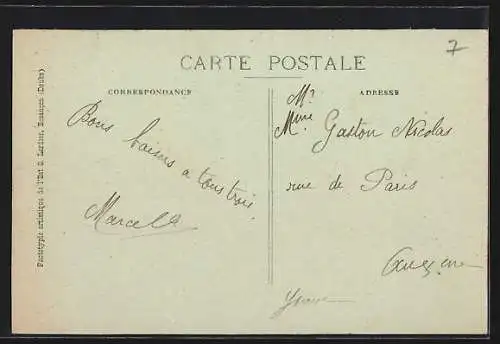 CARTE POSTALE
7
CORRESPONDANCE
ADRESSE
Bons baisers a tous trois.
Marcelle
Mr
Mme Gaston Nicolas
rue de Paris
Auxerre
Yonne
Phototypie artistique de l'Ent C. Lardier, Besançon (Doubs)